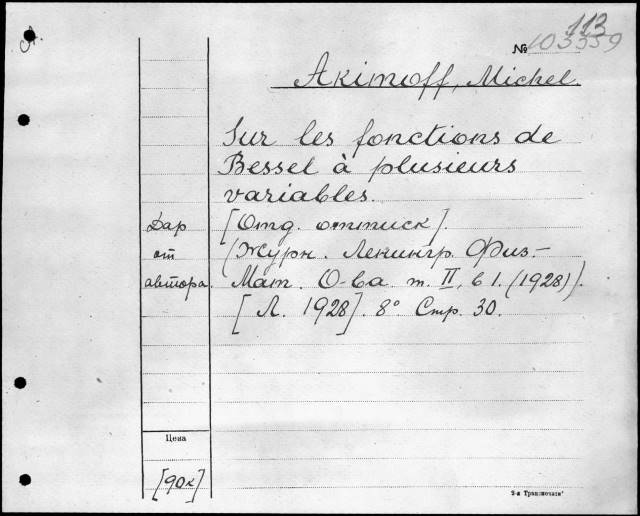 113
№ 103559
Akimoff, Michel.
Sur les fonctions de
Bessel à plusieurs
variables.
Дар [Отд. оттиск].
от (Журн. Ленингр. Физ.-
автора. Мат. О-ва т. II, в 1. (1928)).
[Л. 1928]. 8° Стр. 30.
Цена
[90к]